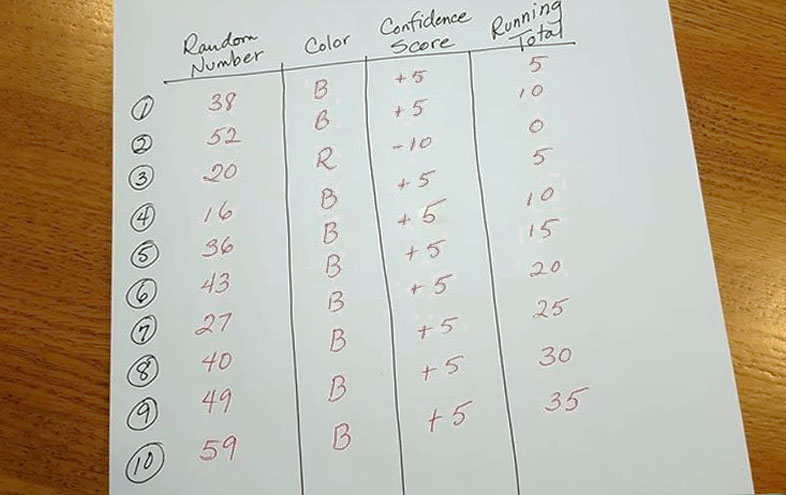 Random Number Color Confidence Score Running Total
① 38 B +5 5
② 52 B +5 10
③ 20 R -10 0
④ 16 B +5 5
⑤ 36 B +5 10
⑥ 43 B +5 15
⑦ 27 B +5 20
⑧ 40 B +5 25
⑨ 49 B +5 30
⑩ 59 B +5 35